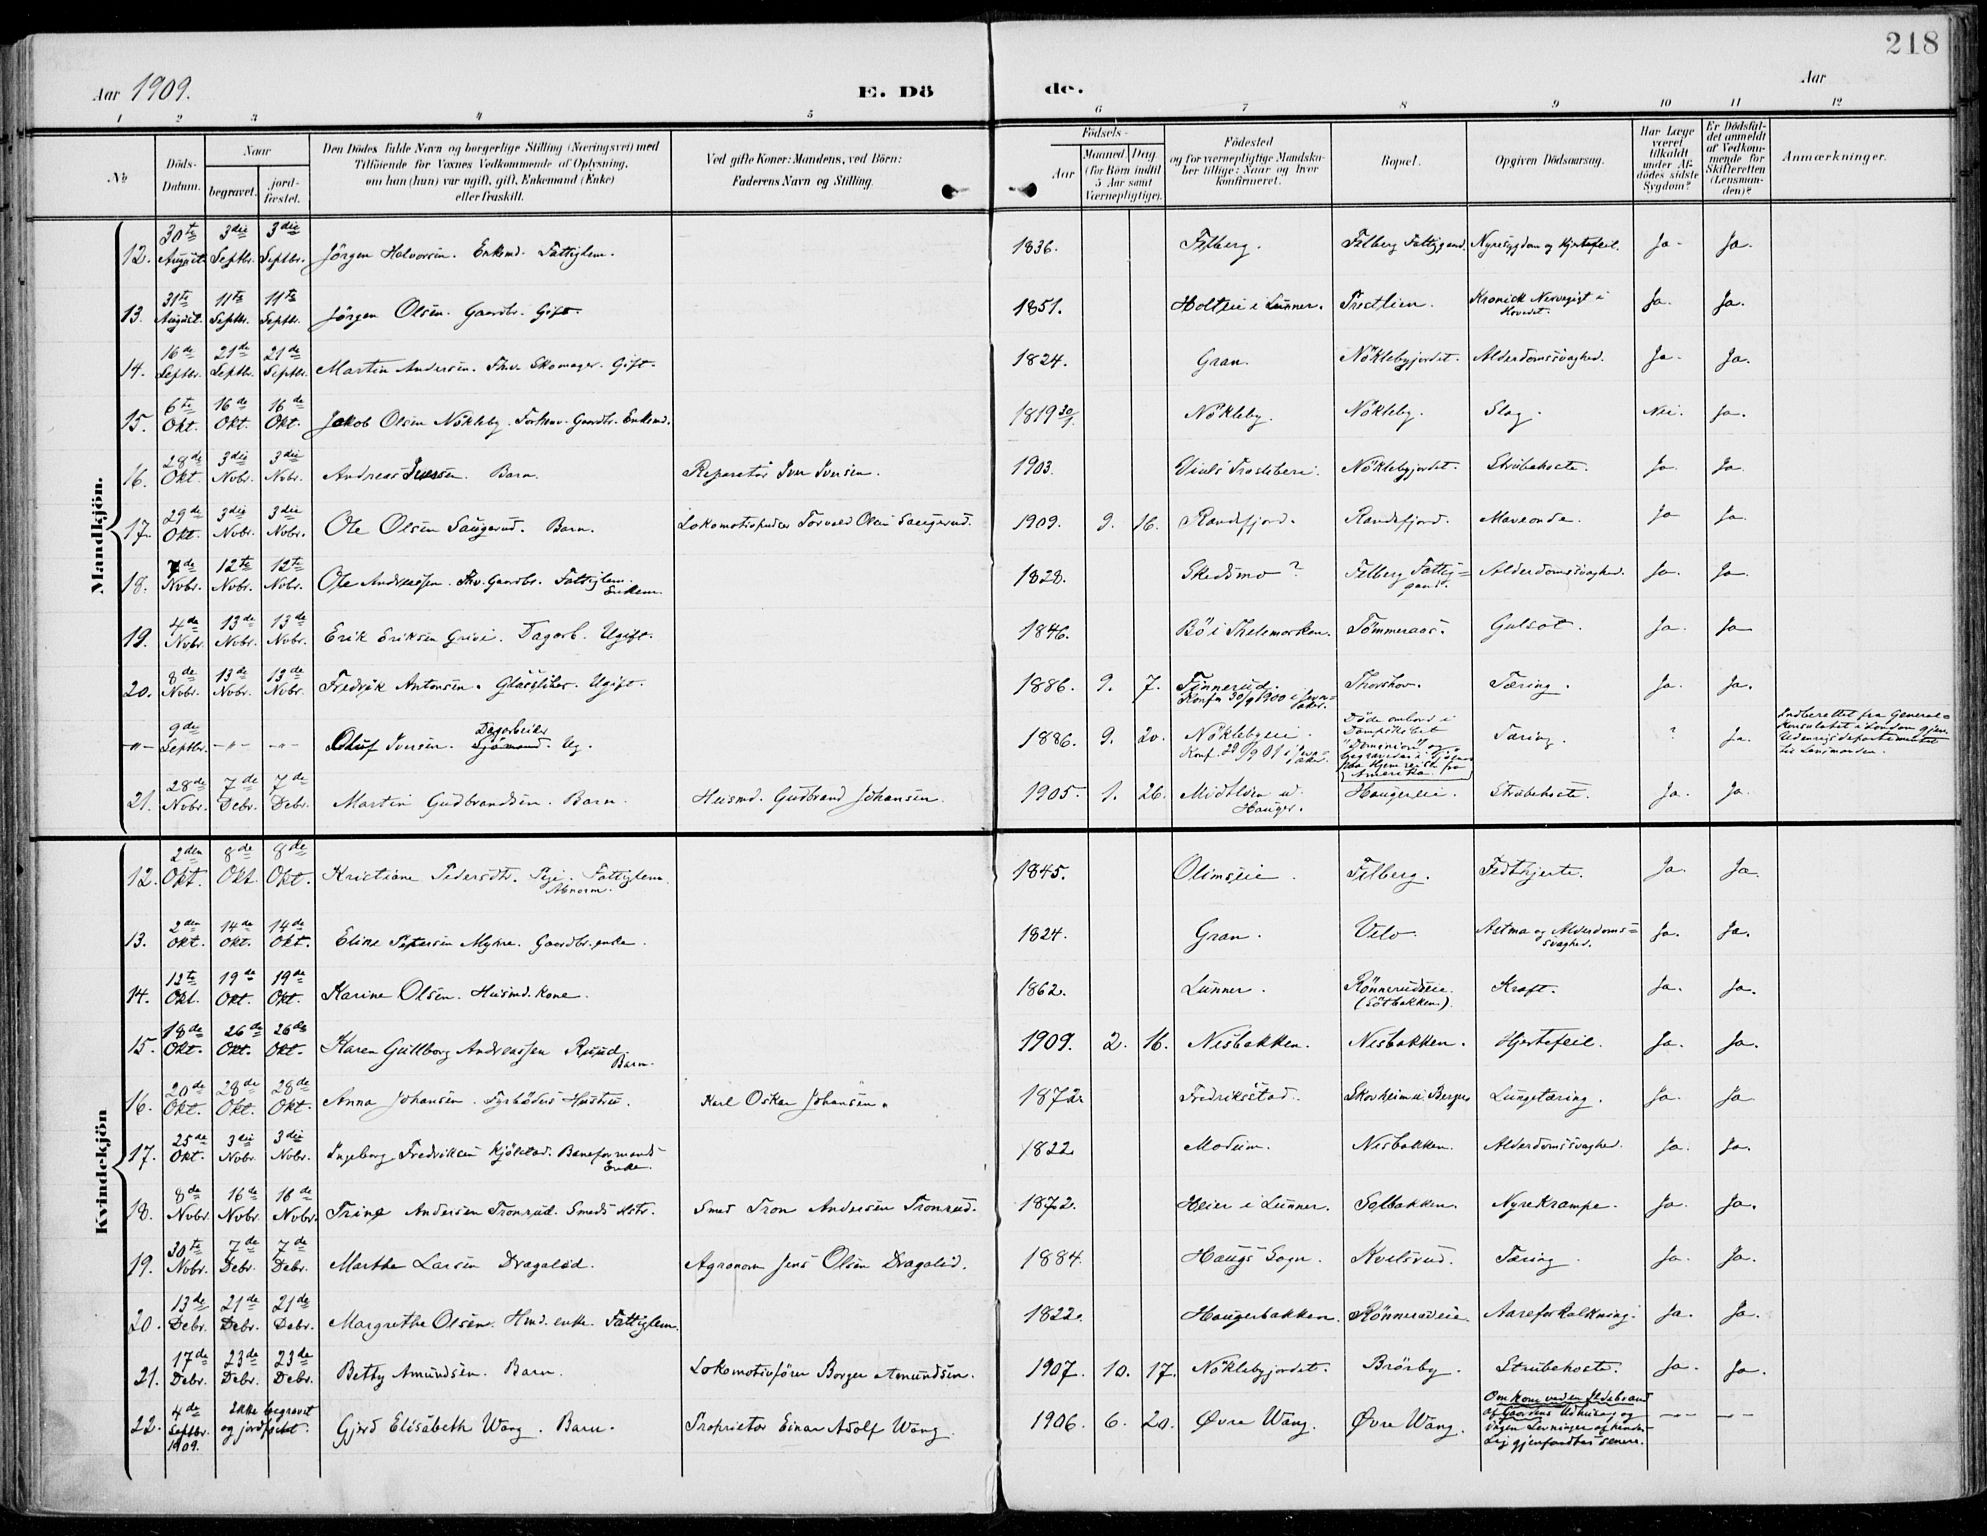 218
Aar 1909.
E. Dö
de.
Aar
1 2 3 4 5 6 7 8 9 10 11 12
No
Döds-Datum.
Naar
begravet.
jord-fæstet.
Den Dödes fulde Navn og borgerlige Stilling (Næringsvei) med
Tilföiende for Voxnes Vedkommende af Oplysning,
om han (hun) var ugift, gift, Enkemand (Enke)
eller fraskilt.
Ved gifte Koner: Mandens, ved Börn:
Faderens Navn og Stilling.
Födsels-
Aar
Maaned Dag
(for Börn indtil
5 Aar samt
Værnepligtige).
Födested
og for værnepligtige Mandska-
ber tillige: Naar og hvor
konfirmeret.
Bopæl.
Opgiven Dödsaarsag.
Har Læge
været
tilkaldt
under Af-
dödes sidste
Sygdom?
Er Dödsfal-
det anmeldt
af Vedkom-
mende for
Skifteretten
(Lensman-
den)?
Anmærkninger.
Mandkjön.
12. 30te August 3die Septbr. 3die Septbr. Jörgen Halvorsen. Enkemd. Fattiglem. 1836. Filberg. Filberg Fattiggaard. Nyresygdom og Hjertefeil. Ja. Ja.
13. 31te August 11te Septbr. 11te Septbr. Jörgen Olsen. Gaardbr. Gift. 1851. Holteie i Lunner. Præstlien. Kronisk Nervegigt i Hovedet. Ja. Ja.
14. 16de Septbr. 21de Septbr. 21de Septbr. Martin Andersen. Fhv. Skomager. Gift. 1824. Gran. Nöklebyjordet. Alderdomssvaghed. Ja. Ja.
15. 6te Okt. 16de Okt. 16de Okt. Jakob Olsen Nökleby. Forhenv. Gaardbr. Enkemd. 1819 30/1 Nökleby. Nökleby. Slag. Nei. Ja.
16. 28de Okt. 3die Nobr. 3die Nobr. Andreas Iversen. Barn. Reparatör Iver Iversen. 1903. Nöklebyjordet. Strubehoste. Ja. Ja.
17. 29de Okt. 3die Nobr. 3die Nobr. Ole Olsen Saugerud. Barn. Lokomotivpudser Torvald Olsen Saugerud. 1909. 9. 16. Randsfjord. Randsfjord. Maveonde. Ja Ja.
18. 7de Nobr. 12te Nobr. 12te Nobr. Ole Andreassen. Fhv. Gaardbr. Fattiglem. Enkem. 1828. Skedsmo? Filberg Fattig=gaard. Alderdomssvaghed. Ja. Ja.
19. 4de Nobr. 13de Nobr. 13de Nobr. Erik Eriksen Grivi. Dagarb. Ugift. 1846. Bö i Thelemarken. Tömmeraas. Gulsot. Ja. Ja
20. 8de Nobr. 13de Nobr. 13de Nobr. Fredrik Antonsen. Glassliber. Ugift. 1886. 9. 7. Finnerud. Konf. 30/9 1900 i Jevnaker. Thorshov. Tæring. Ja. Ja.
-"- 9de Septbr. -"- -"- Oluf Iversen. Dagarbeider Sjömand. Ug. 1886. 9. 20. Nöklebyeie. Konf. 29/9 01 i Jevnaker. Döde ombord i Dampskibet "Dominion" og begravdes i Sjöen paa Hjemreise fra Amerika. Tæring. ? Ja. Indberettet fra General=konsulatet i London gjen. Udenrigsdepartementet til Lensmanden.
21. 28de Nobr. 7de Debr. 7de Debr. Martin Gudbrandsen. Barn. Husmd. Gudbrand Johansen. 1905. 1. 26. Midtlien u. Hauger. Haugereie. Strubehoste. Ja. Ja.
Kvindekjön
12. 2den Okt. 8de Okt. 8de Okt. Kristiane Pedersdtr. Pige. Fattiglem. Abnorm. 1845. Olimseie. Filberg. Fedthjerte. Ja. Ja.
13. 2den Okt. 14de Okt. 14de Okt. Eline Petersen Myhre. Gaardbr. enke. 1824. Gran. Velo. Astma og Alderdoms=svaghed. Ja. Ja.
14. 12te Okt. 19de Okt. 19de Okt. Karine Olsen. Husmd. Kone. 1862. Lunner. Rönnerudseie (Götbakken). Kræft. Ja. Ja.
15. 18de Okt. 26de Okt. 26de Okt. Karen Gullborg Andreassen Ruud. Barn. 1909. 2. 16. Nisbakken. Nisbakken. Hjertefeil. Ja. Ja.
16. 20de Okt. 28de Okt. 28de Okt. Anna Johansen. Fyrböders Hustru. Karl Oskar Johansen. Fredriksstad. Skovheim u. Berger Lungetæring. Ja. Ja
17. 25de Okt. 3die Nobr. 3die Nobr. Ingeborg Fredriksen Kjölstad. Baneformands Enke. 1822 Modum. Nisbakken. Alderdomssvaghed. Ja. Ja.
18. 8de Nobr. 16de Nobr. 16de Nobr. Trine Andersen Tronrud. Smeds Hstr. Smed Tron Andersen Tronrud. 1872. Heier i Lunner. Solbakken. Nyrekrampe. Ja. Ja.
19. 30te Nobr. 7de Debr. 7de Debr. Marthe Larsen Dragalid. Agronom Jens Olsen Dragalid. 1884. Haugs Sogn. Kvelsrud. Tæring. Ja. Ja.
20. 13de Debr. 21de Debr. 21de Debr. Margrethe Olsen. Hmd. enke. Fattiglem. 1822. Haugerbakken. Rönnerudeie. Aareforkalkning. Ja. Ja.
21. 17de Debr. 23de Debr. 23de Debr. Betty Amundsen. Barn. Lokomotivförer Borger Amundsen. 1907. 10. 17. Nöklebyjordet. Brörby. Strubehoste. Ja. Ja
22. 4de Septbr. 1909. Ikke begravet og jordfæstet. Gjerd Elisabeth Wang. Barn. Proprietær Einar Adolf Wang. 1906. 6. 20. Øvre Wang. Øvre Wang. Omkom ved en Ildebrand af Gaardens Udhus og ingen Levninger af hendes Lig gjenfandtes senere. -"- -"-